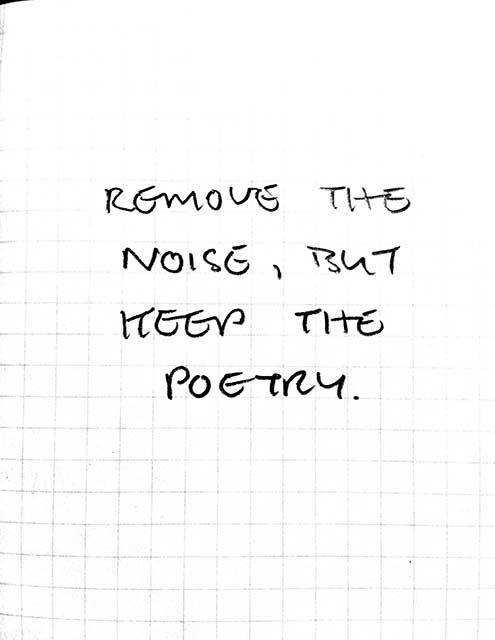 REMOVE THE
NOISE, BUT
KEEP THE
POETRY.